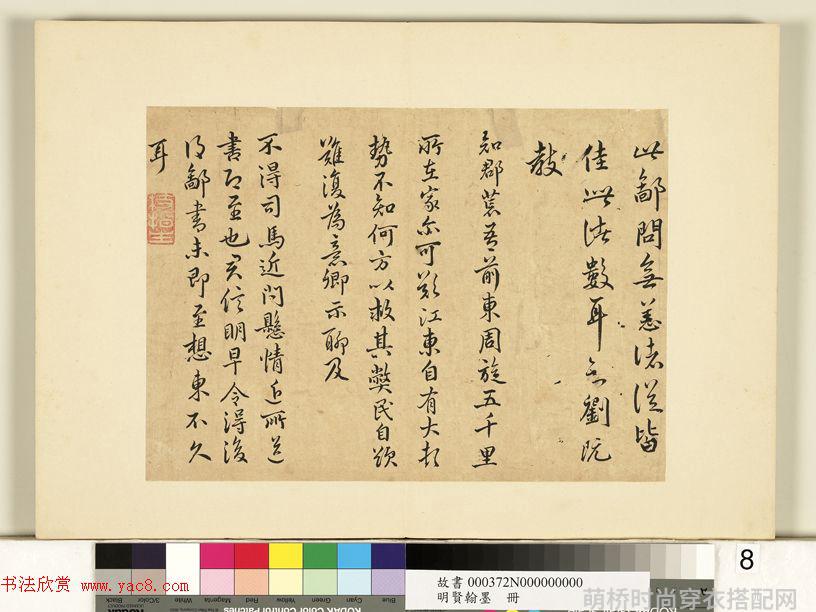 此鄱問無恙諸從皆
佳此數耳劉阮
知郡荒吾前東周旋五千里
所在家尓可歎江東自有大頓
勢不知何方以救其弊民自欲
難復為意卿示聊及
不得司馬近問懸情近所送
書即至也信明早令得後
鄱書未即至想東不久
耳
8
故書 000372N000000000
明賢翰墨 冊
Black
3/Color
White
Magenta
Red
Yellow
Green
Cyan
Blue
KODAK Color Control Patches
书法欣赏 www.yac8.com
萌桥时尚穿衣搭配网